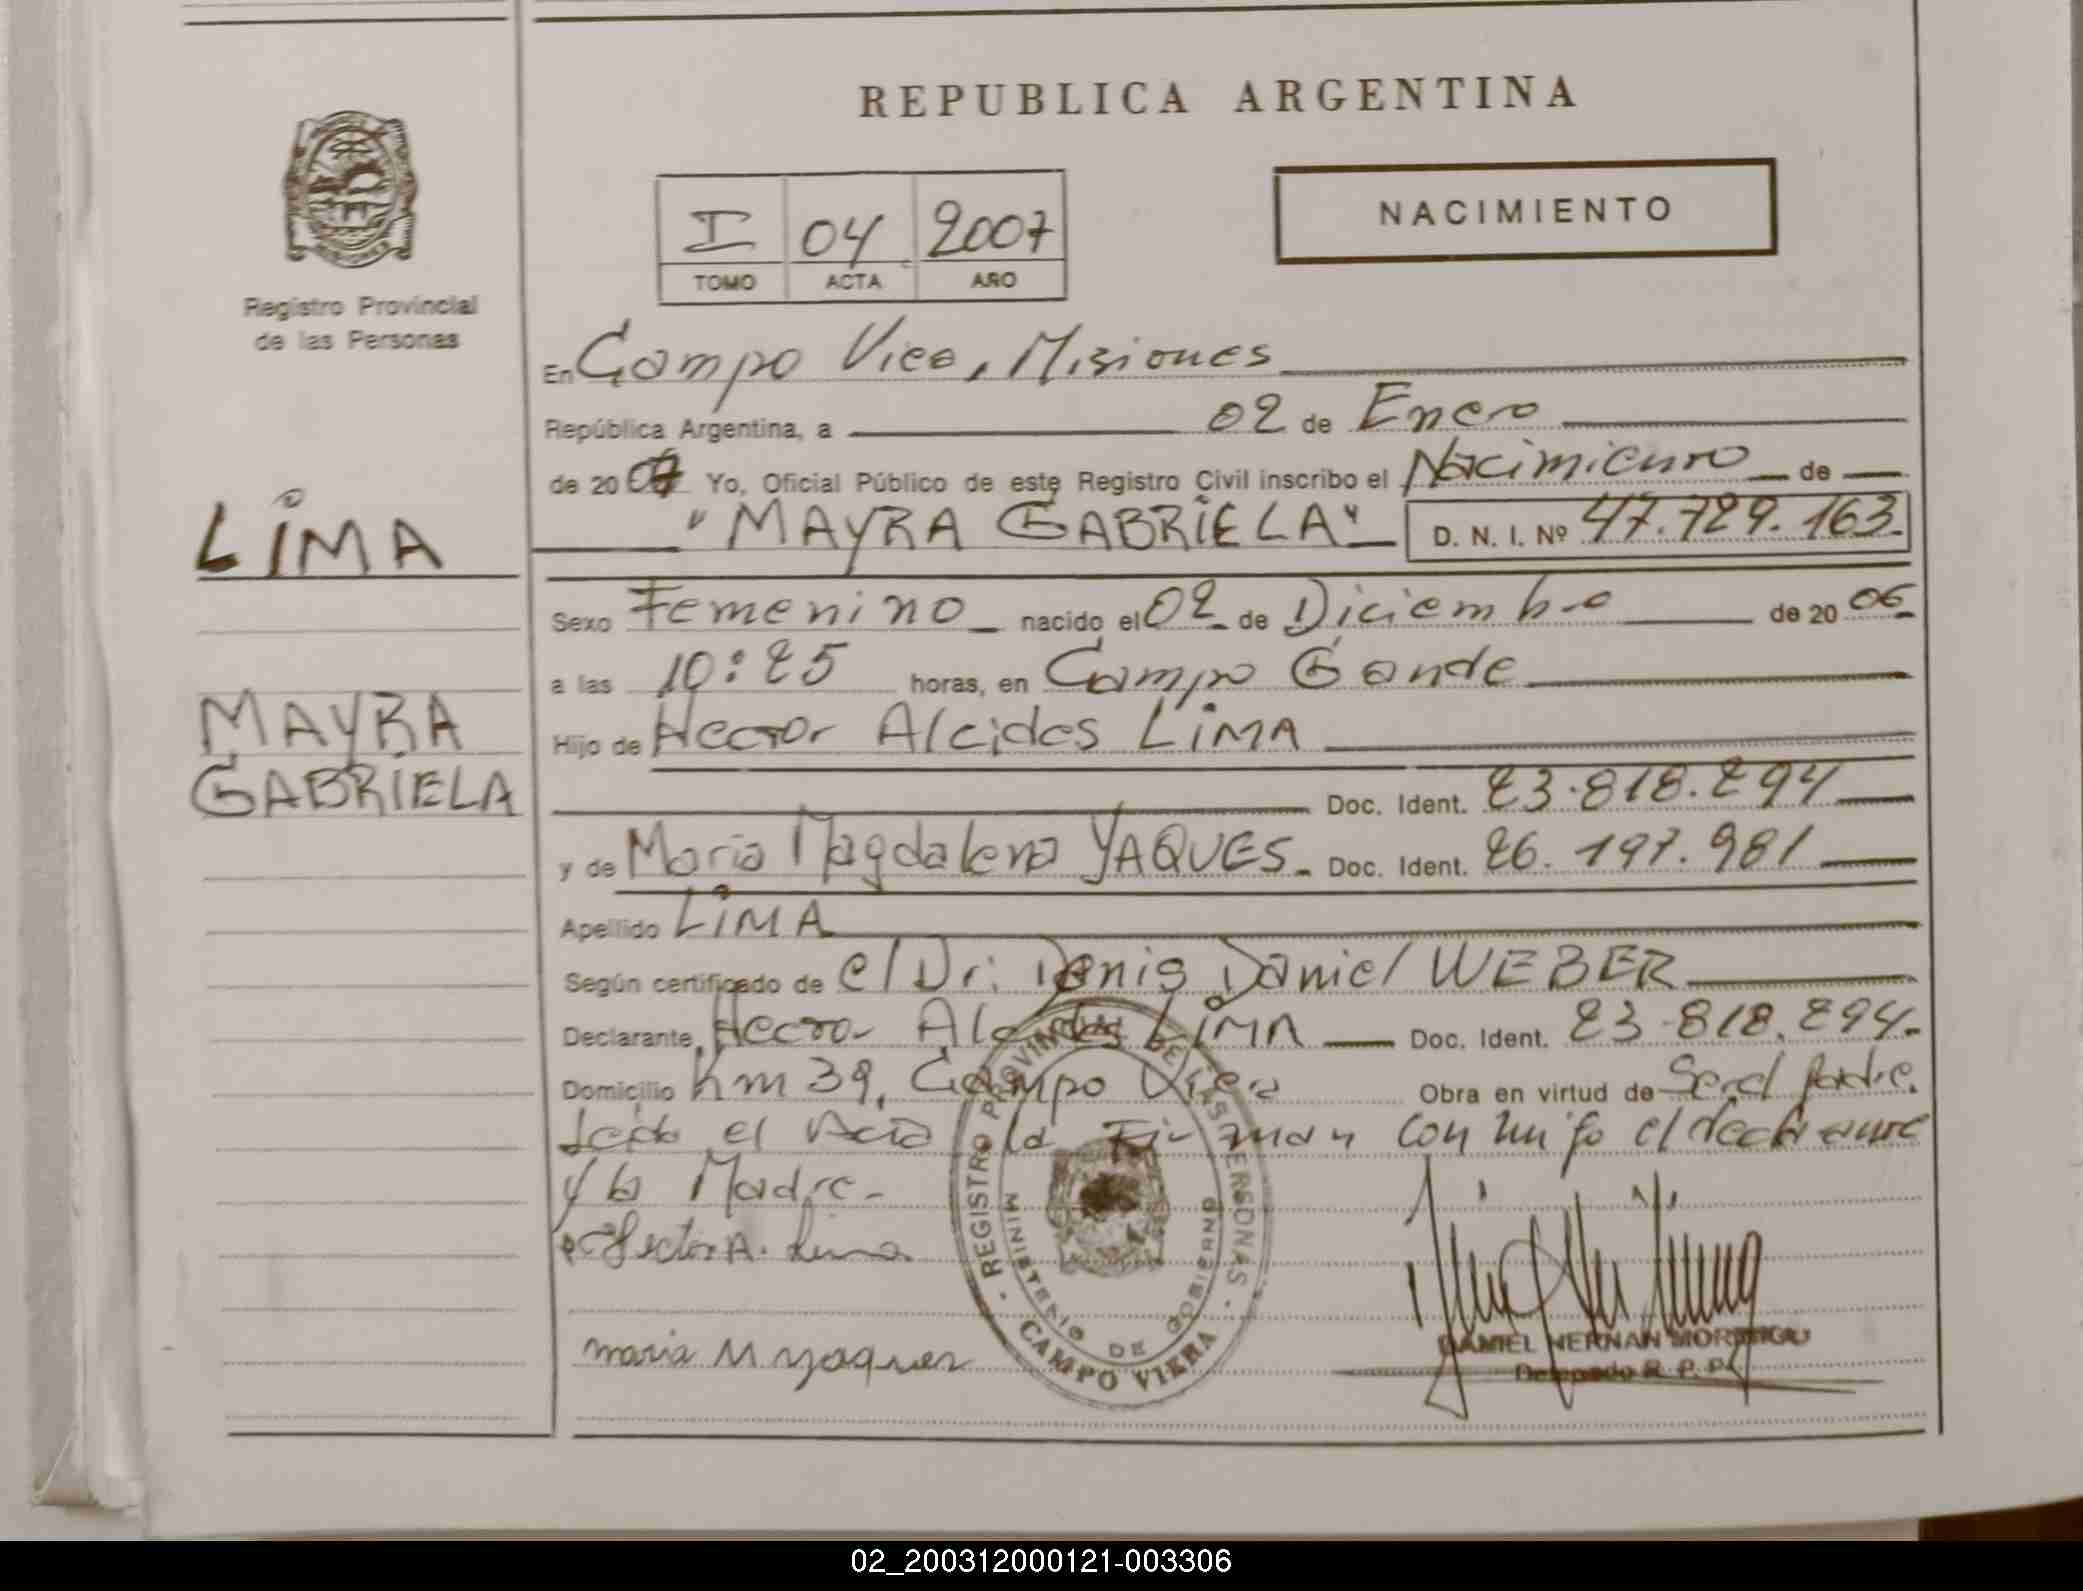 REPUBLICA ARGENTINA
NACIMIENTO
I 04 2007
TOMO ACTA AÑO
Registro Provincial
de las Personas
En Campo Viera, Misiones
República Argentina, a 02 de Enero
de 2007 Yo, Oficial Público de este Registro Civil inscribo el Nacimiento de
"MAYRA GABRIELA" D. N. I. Nº 47.729.163
LIMA
Sexo Femenino nacido el 02 de Diciembre de 20 06
a las 10:25 horas, en Campo Grande
MAYRA
GABRIELA
Hijo de Hector Alcides LIMA
Doc. Ident. 23.818.294
y de Maria Magdalena YAQUES Doc. Ident. 26.197.981
Apellido LIMA
Según certificado de el Dr. Denis Daniel WEBER
Declarante, Hector Alcides LIMA Doc. Ident. 23.818.294.
Domicilio Km 39, Campo Viera Obra en virtud de Ser el Padre.
Leida el Acta la Firman conmigo el declarante
y la Madre.-
Hector A. Lima
Maria M yaques
REGISTRO PROVINCIAL DE LAS PERSONAS
MINISTERIO DE GOBIERNO
CAMPO VIERA
DANIEL HERNAN
Delegado R. P. P.
02_200312000121-003306